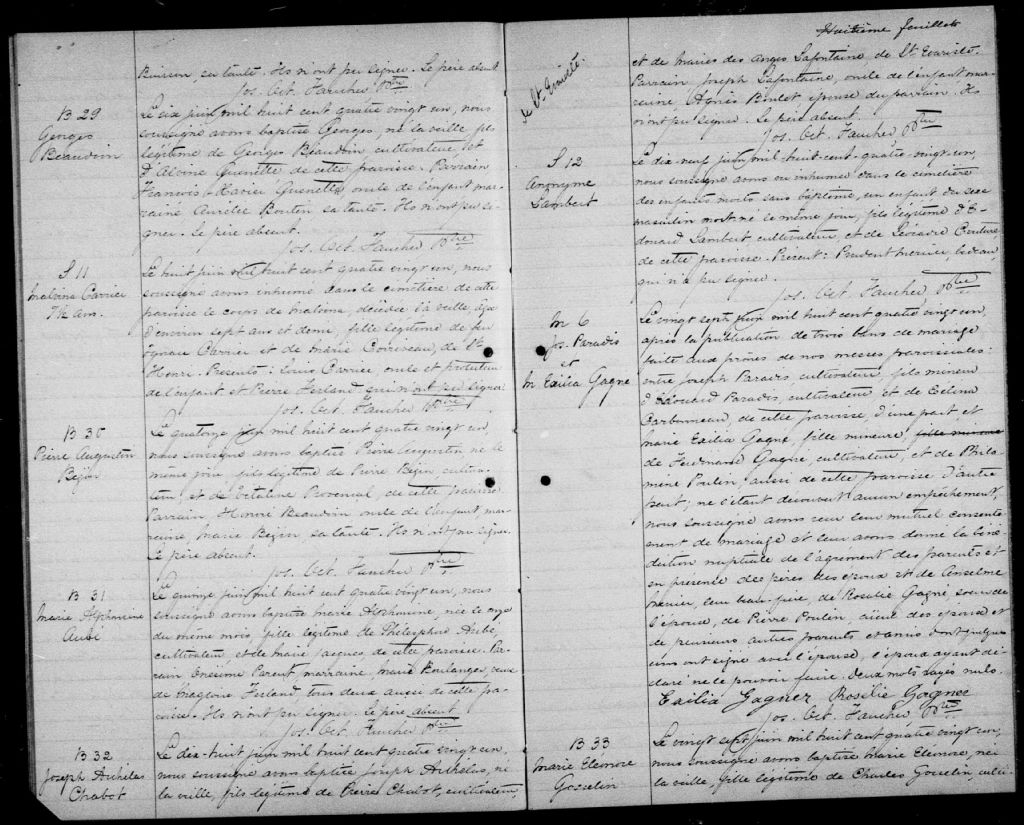 Buisson sa tante. Ils n'ont pu signer. Le père absent
Jos. Oct. Faucher Ptre
B 29
Georges
Beaudoin
Le six juin mil huit cent quatre vingt un, nous
soussigné avons baptisé Georges, né la veille, fils
légitime de Georges Beaudoin cultivateur et
d'Alvine Guenette de cette paroisse. Parrain
François-Xavier Guenette, oncle de l'enfant mar-
raine Aurélie Boutin sa tante. Ils n'ont pu si-
gner. Le père absent.
Jos. Oct. Faucher Ptre
S 11
Malvina Carrier
7½ ans.
Le huit juin mil huit cent quatre vingt un, nous
soussigné avons inhumé dans le cimetière de cette
paroisse le corps de Malvina, décédée la veille, âgée
d'environ sept ans et demi, fille légitime de feu
Ignace Carrier et de Marie Corriveau, de St
Henri. Présents: Louis Carrier, oncle et tuteur
de l'enfant et Pierre Ferland qui n'ont pu signer
Jos. Oct. Faucher Ptre
B 30
Pierre Augustin
Bégin
Le quatorze juin mil huit cent quatre vingt un,
nous soussigné avons baptisé Pierre Augustin né le
même jour, fils légitime de Pierre Bégin, cultiva-
teur, et de Vitaline Provencal, de cette paroisse.
Parrain, Honoré Beaudoin oncle de l'enfant, mar-
raine, Marie Bégin sa tante. Ils n'ont pu signer.
Le père absent.
Jos. Oct. Faucher Ptre
B 31
Marie Alphonsine
Aubé
Le quinze juin mil huit cent quatre vingt un, nous
soussigné avons baptisé Marie Alphonsine, née le onze
du même mois, fille légitime de Théléphore Aubé,
cultivateur, et de Marie Jacques, de cette paroisse. Par-
rain Onésime Parent, marraine, Marie Boulanger, veuve
de Magloire Ferland, tous deux aussi de cette pa-
roisse. Ils n'ont pu signer. Le père absent
Jos. Oct. Faucher Ptre
B 32
Joseph Archélas
Chabot
Le dix-huit juin mil huit cent quatre vingt un,
nous soussigné avons baptisé Joseph Archélas, né
la veille, fils légitime de Pierre Chabot, cultivateur,
Huitième feuillet
de St. Evariste.
et de Maries des Anges Lafontaine de St. Evariste.
Parrain Joseph Lafontaine, oncle de l'enfant mar-
raine, Agnès Boulet épouse du parrain. Ils
n'ont pu signer. Le père absent.
Jos. Oct. Faucher Ptre
S 12
Anonyme
Lambert
Le dix-neuf juin mil-huit-cent-quatre-vingt-un,
nous soussigné avons vu inhumer dans le cimetière
des enfants morts sans baptême, un enfant du sexe
masculin mort-né le même jour, fils légitime d'E-
douard Lambert, cultivateur, et de Léocadie Couture
de cette paroisse. Présent: Prudent Mercier bedeau,
qui n'a pu signer.
Jos. Oct. Faucher Ptre
M 6
Jos. Paradis
et
M Exilia Gagné
Le vingt sept juin mil huit cent quatre vingt un,
après la publication de trois bans de mariage
faite aux prônes de nos messes paroissiales:
entre Joseph Paradis, cultivateur, fils mineur
d'Edouard Paradis, cultivateur, et de Célina
Carbonneau, de cette paroisse, d'une part et
Marie Exilia Gagné, fille mineure, fille mineure
de Ferdinand Gagné, cultivateur, et de Philo-
mène Poulin, aussi de cette paroisse d'autre
part; ne s'étant découvert aucun empêchement,
nous soussigné avons reçu leur mutuel consente-
ment de mariage et leur avons donné la béné-
diction nuptiale de l'agrément des parents et
en présence des pères des époux et de Anselme
Mercier, leur beau-frère, de Rosalie Gagné, soeur de
l'épouse, de Pierre Poulin, aïeul des époux et
de plusieurs autres parents et amis dont quelques
uns ont signé avec l'épouse, l'époux ayant dé-
claré ne le pouvoir faire. Deux mots rayés nuls.
Exilia Gagner Rosélie Gagner
Jos. Oct. Faucher Ptre
B 33
Marie Eleonore
Gosselin
Le vingt sept juin mil huit cent quatre vingt un,
nous soussigné avons baptisé Marie Eleonore, née
la veille, fille légitime de Charles Gosselin, culti-